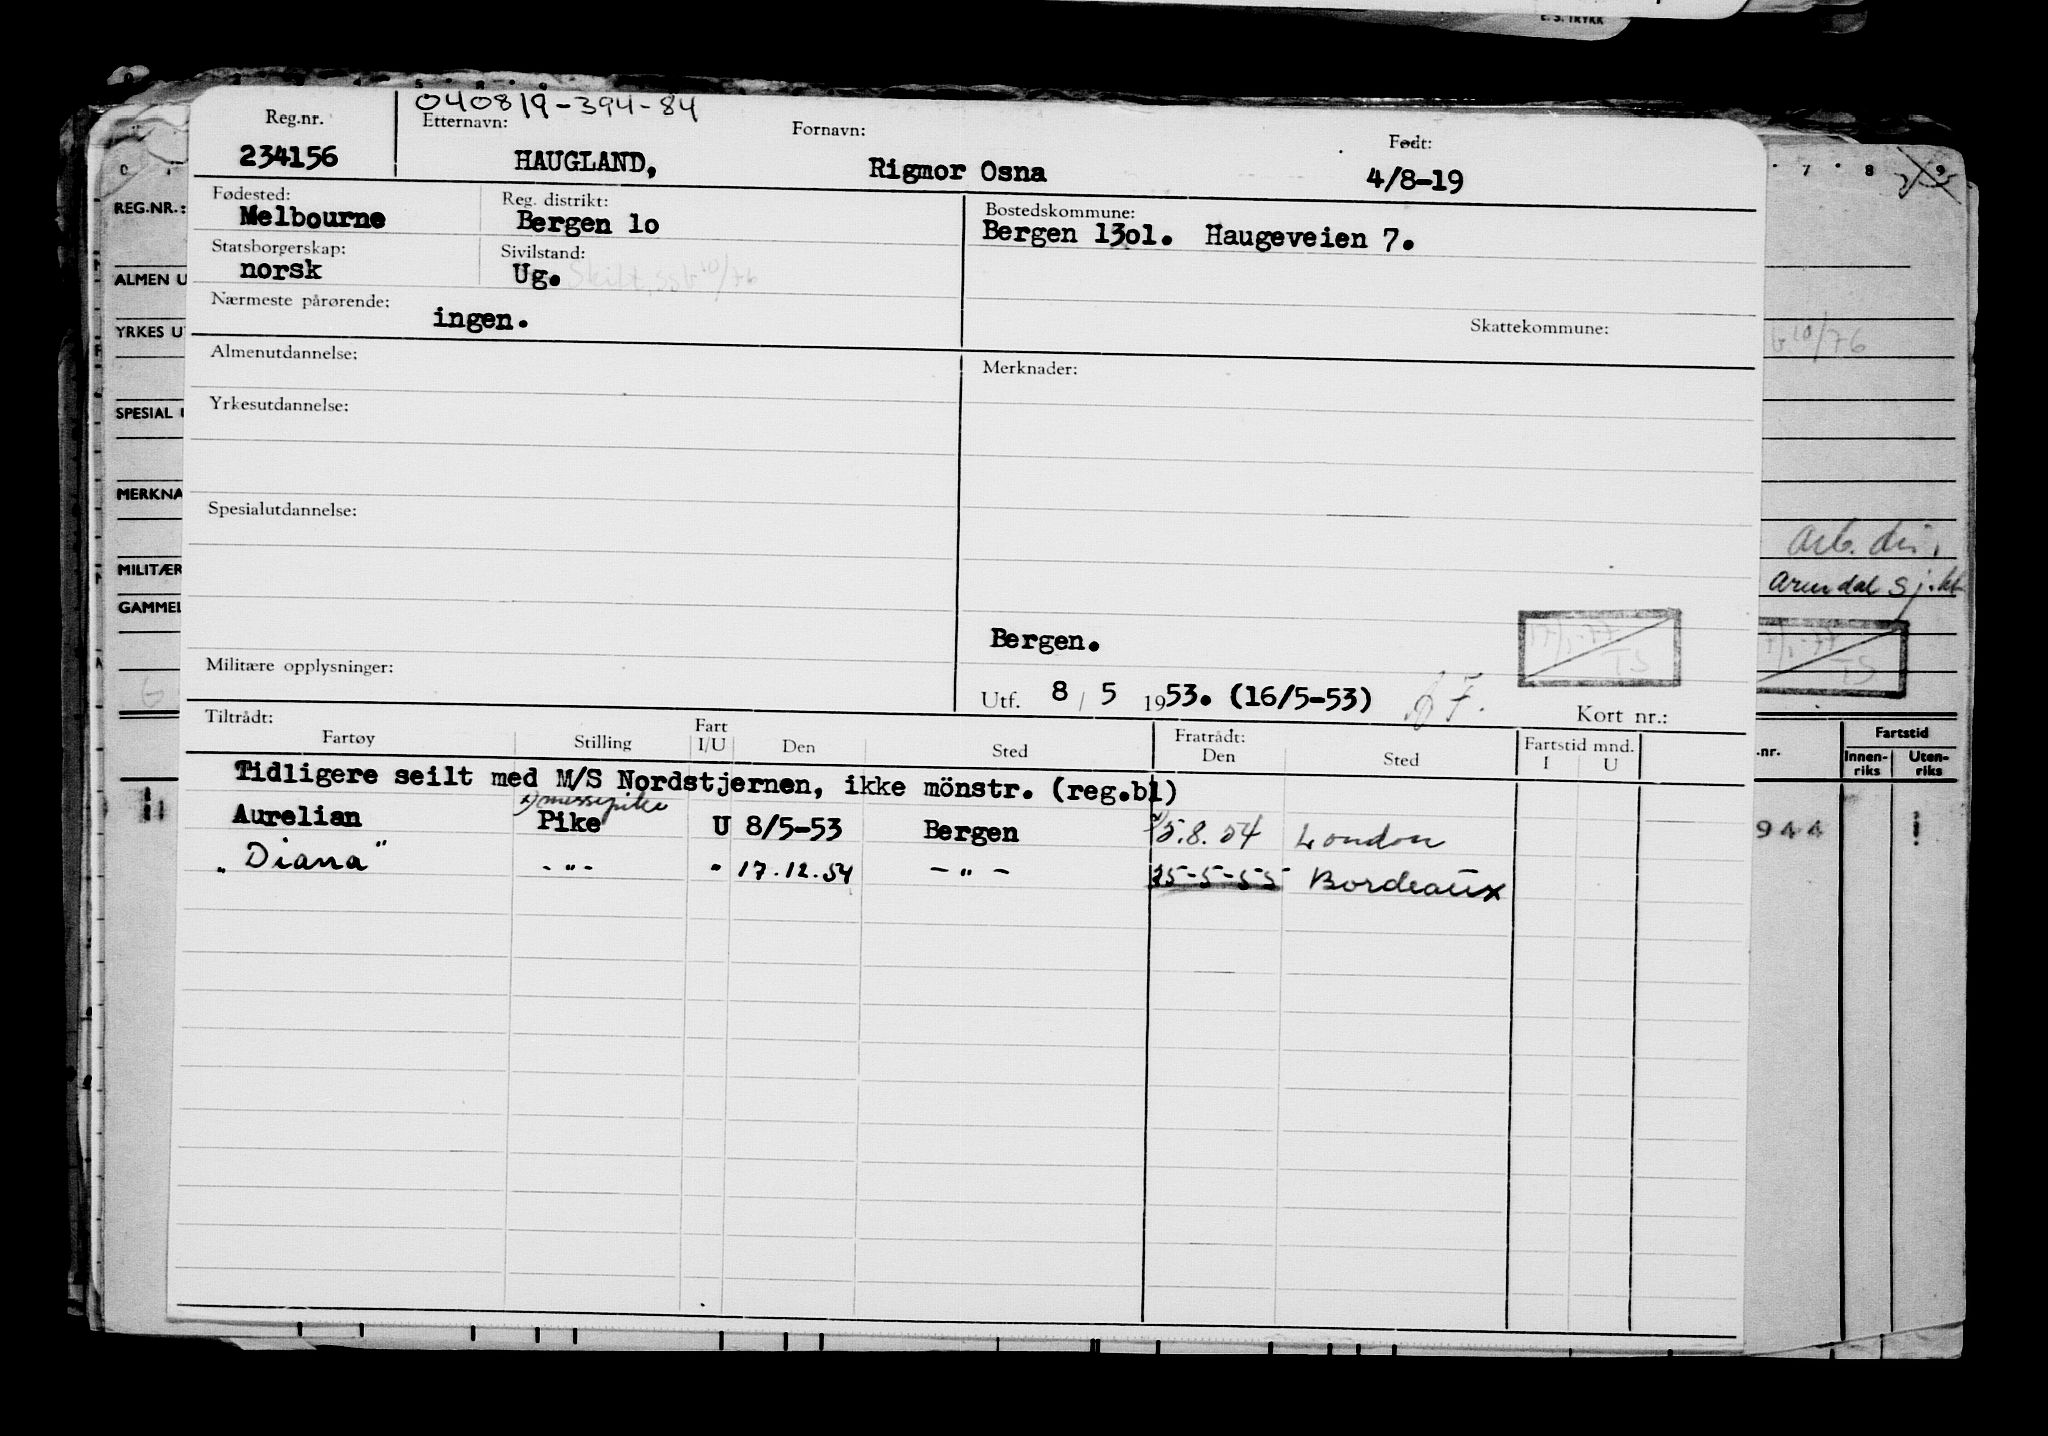 E. S. TRYKK
040819-394-84
Reg.nr. Etternavn: Fornavn: Født:
234156 HAUGLAND, Rigmor Osna 4/8-19
Fødested: Reg. distrikt: Bostedskommune:
Melbourne Bergen 1o Bergen 13o1. Haugeveien 7.
Statsborgerskap: Sivilstand:
norsk Ug. Skilt, SSB 10/76
Nærmeste pårørende: Skattekommune:
ingen.
Almenutdannelse: Merknader:
Yrkesutdannelse:
Spesialutdannelse:
Bergen.
17/1-77
TS
Militære opplysninger:
Utf. 8 / 5 1953. (16/5-53)
Kort nr.:
Tiltrådt: Fratrådt:
Fartøy Stilling Fart I/U Den Sted Den Sted Fartstid mnd. I U
Tidligere seilt med M/S Nordstjernen, ikke mönstr. (reg.bl)
messepike
Aurelian Pike U 8/5-53 Bergen 5.8.54 London
"Diana" - " - " 17.12.54 - " - 25-5-55 Bordeaux
REG.NR.:
ALMEN U
YRKES U
SPESIAL
MERKNA
MILITÆR
GAMMEL
7 8 9
10/76
Arb. dir.
Arendal sj.kt
17/1-77
TS
.nr. Fartstid
Innen-riks Uten-riks
944